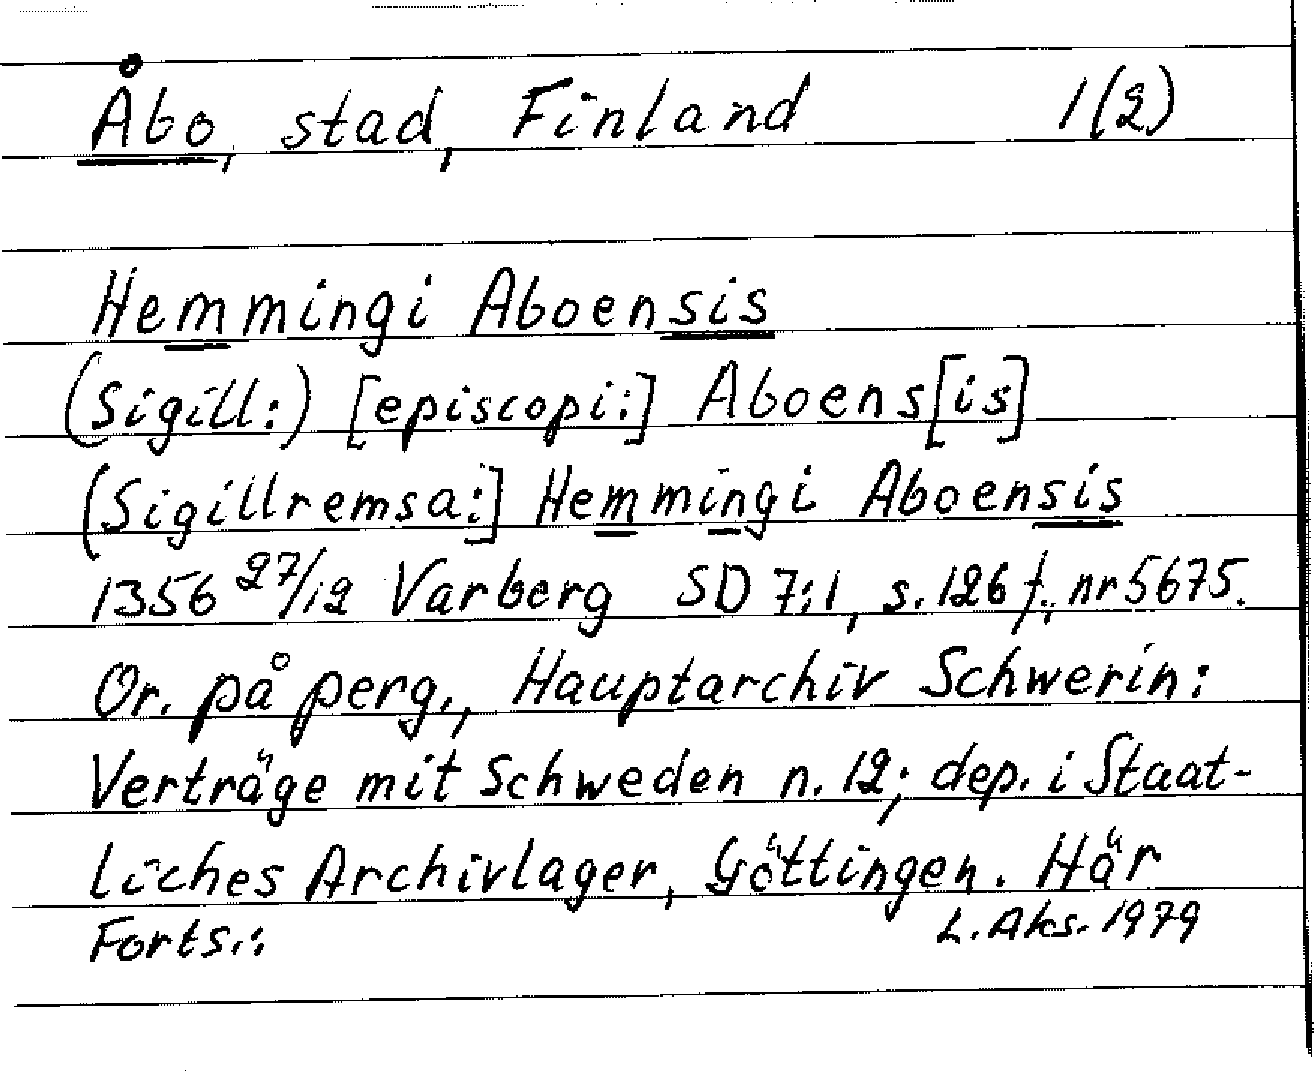 Åbo, stad, Finland 1(2)
Hemmingi Aboensis
(Sigill:) [episcopi:] Aboens[is]
(Sigillremsa:] Hemmingi Aboensis
1356 27/12 Varberg SD 7:1, s. 126 f., nr 5675.
Or. på perg., Hauptarchiv Schwerin:
Verträge mit Schweden n. 12; dep. i Staat-
liches Archivlager, Göttingen. Här
Forts.: L. Aks. 1979